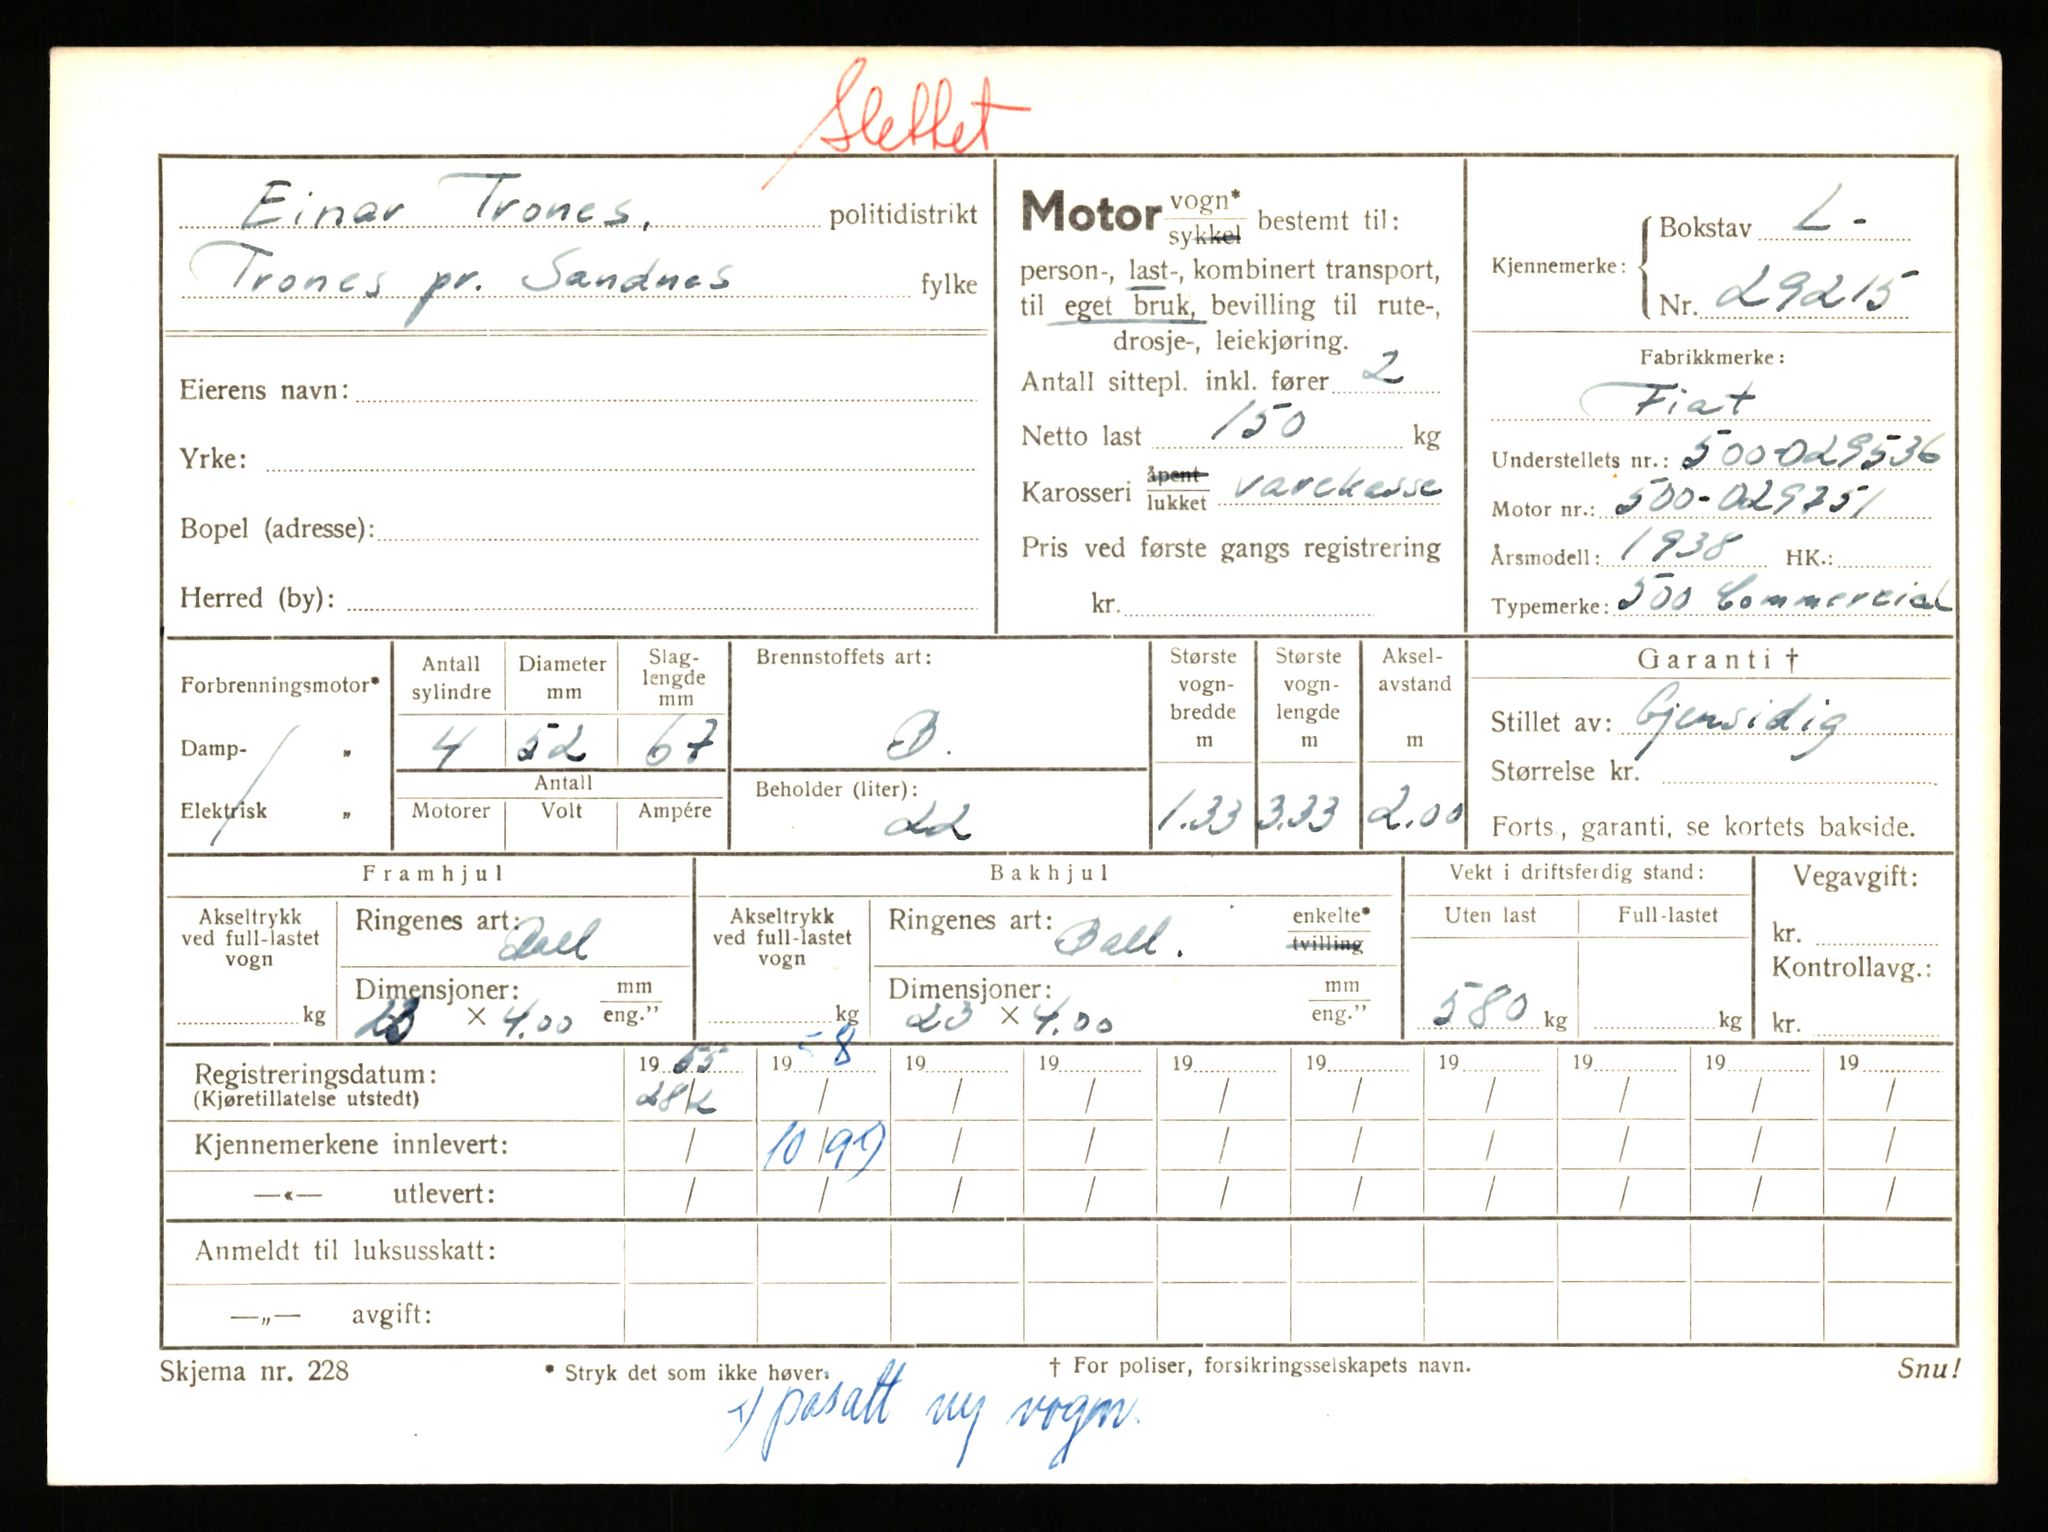 Slettet
Einar Trones, politidistrikt
Trones pr. Sandnes fylke
Eierens navn:
Yrke:
Bopel (adresse):
Herred (by):
Motor vogn* sykkel bestemt til:
person-, last-, kombinert transport,
til eget bruk, bevilling til rute-,
drosje-, leiekjøring.
Antall sittepl. inkl. fører 2
Netto last 150 kg
Karosseri åpent lukket varekasse
Pris ved første gangs registrering
kr.
Kjennemerke: Bokstav L-
Nr. 29215
Fabrikkmerke:
Fiat
Understellets nr.: 500-029536
Motor nr.: 500-029751
Årsmodell: 1938 HK.:
Typemerke: 500 Commercial
Forbrenningsmotor*
Damp- „
Elektrisk „
Antall sylindre
Diameter mm
Slag-lengde mm
4 52 67
Antall
Motorer Volt Ampére
Brennstoffets art:
B.
Beholder (liter):
22
Største vogn-bredde m
1.33
Største vogn-lengde m
3.33
Aksel-avstand m
2.00
Garanti †
Stillet av: Gjensidig
Størrelse kr.
Forts., garanti, se kortets bakside.
Framhjul
Akseltrykk
ved full-lastet
vogn
kg
Ringenes art: Ball
Dimensjoner: mm
23 × 4.00 eng.”
Bakhjul
Akseltrykk
ved full-lastet
vogn
kg
Ringenes art: Ball. enkelte* tvilling
Dimensjoner: mm
23 × 4.00 eng.”
Vekt i driftsferdig stand:
Uten last Full-lastet
580 kg kg
Vegavgift:
kr.
Kontrollavg.:
kr.
Registreringsdatum: 19 55 19 58 19 19 19 19 19 19 19 19
(Kjøretillatelse utstedt) 28/2 / / / / / / / / /
Kjennemerkene innlevert: / 10/9 1) / / / / / / / /
—«— utlevert: / / / / / / / / / /
Anmeldt til luksusskatt:
—„— avgift:
Skjema nr. 228 * Stryk det som ikke høver. † For poliser, forsikringsselskapets navn. Snu!
1) påsatt ny vogn.